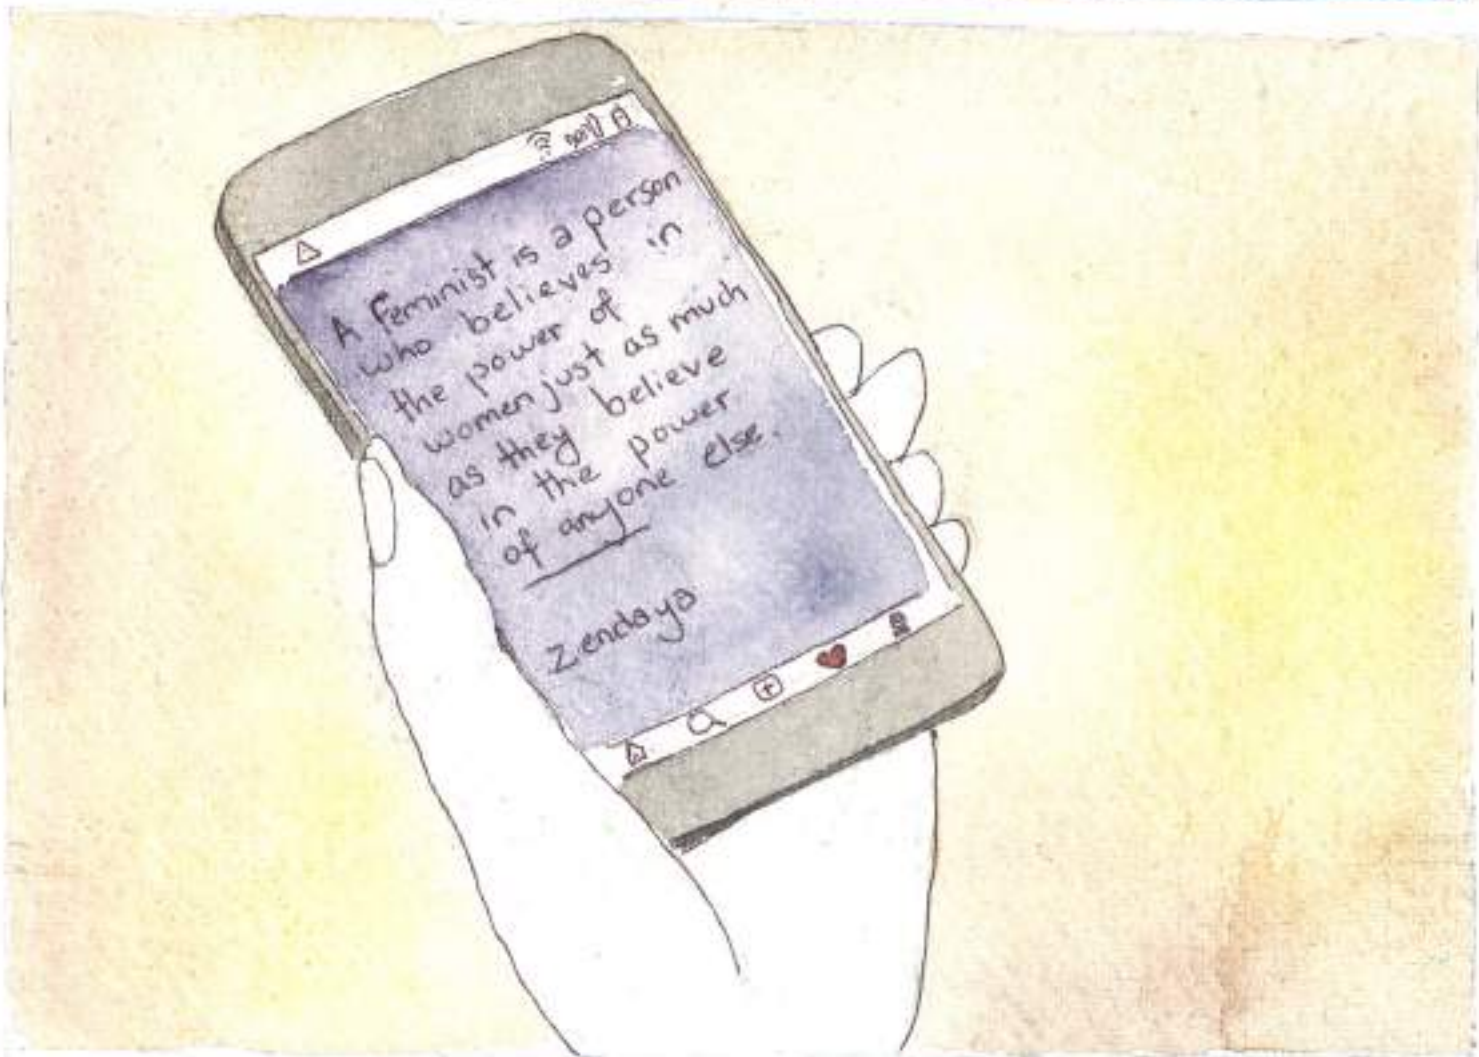 A feminist is a person
who believes in
the power of
women just as much
as they believe
in the power
of anyone else.
Zendaya